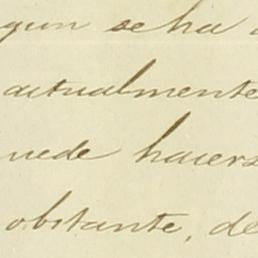 gun se ha
actualmente
uede hacers
obstante, de